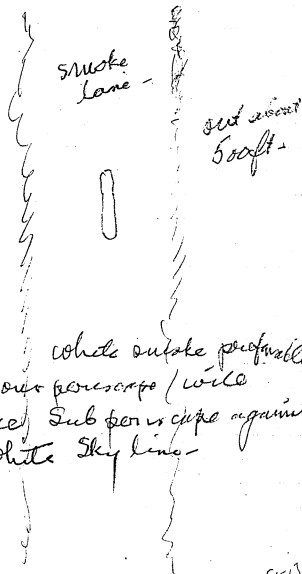 smoke
lane -
out about
500 ft -
White smoke preferable
our periscope / will
Sub periscope again
White Sky line -